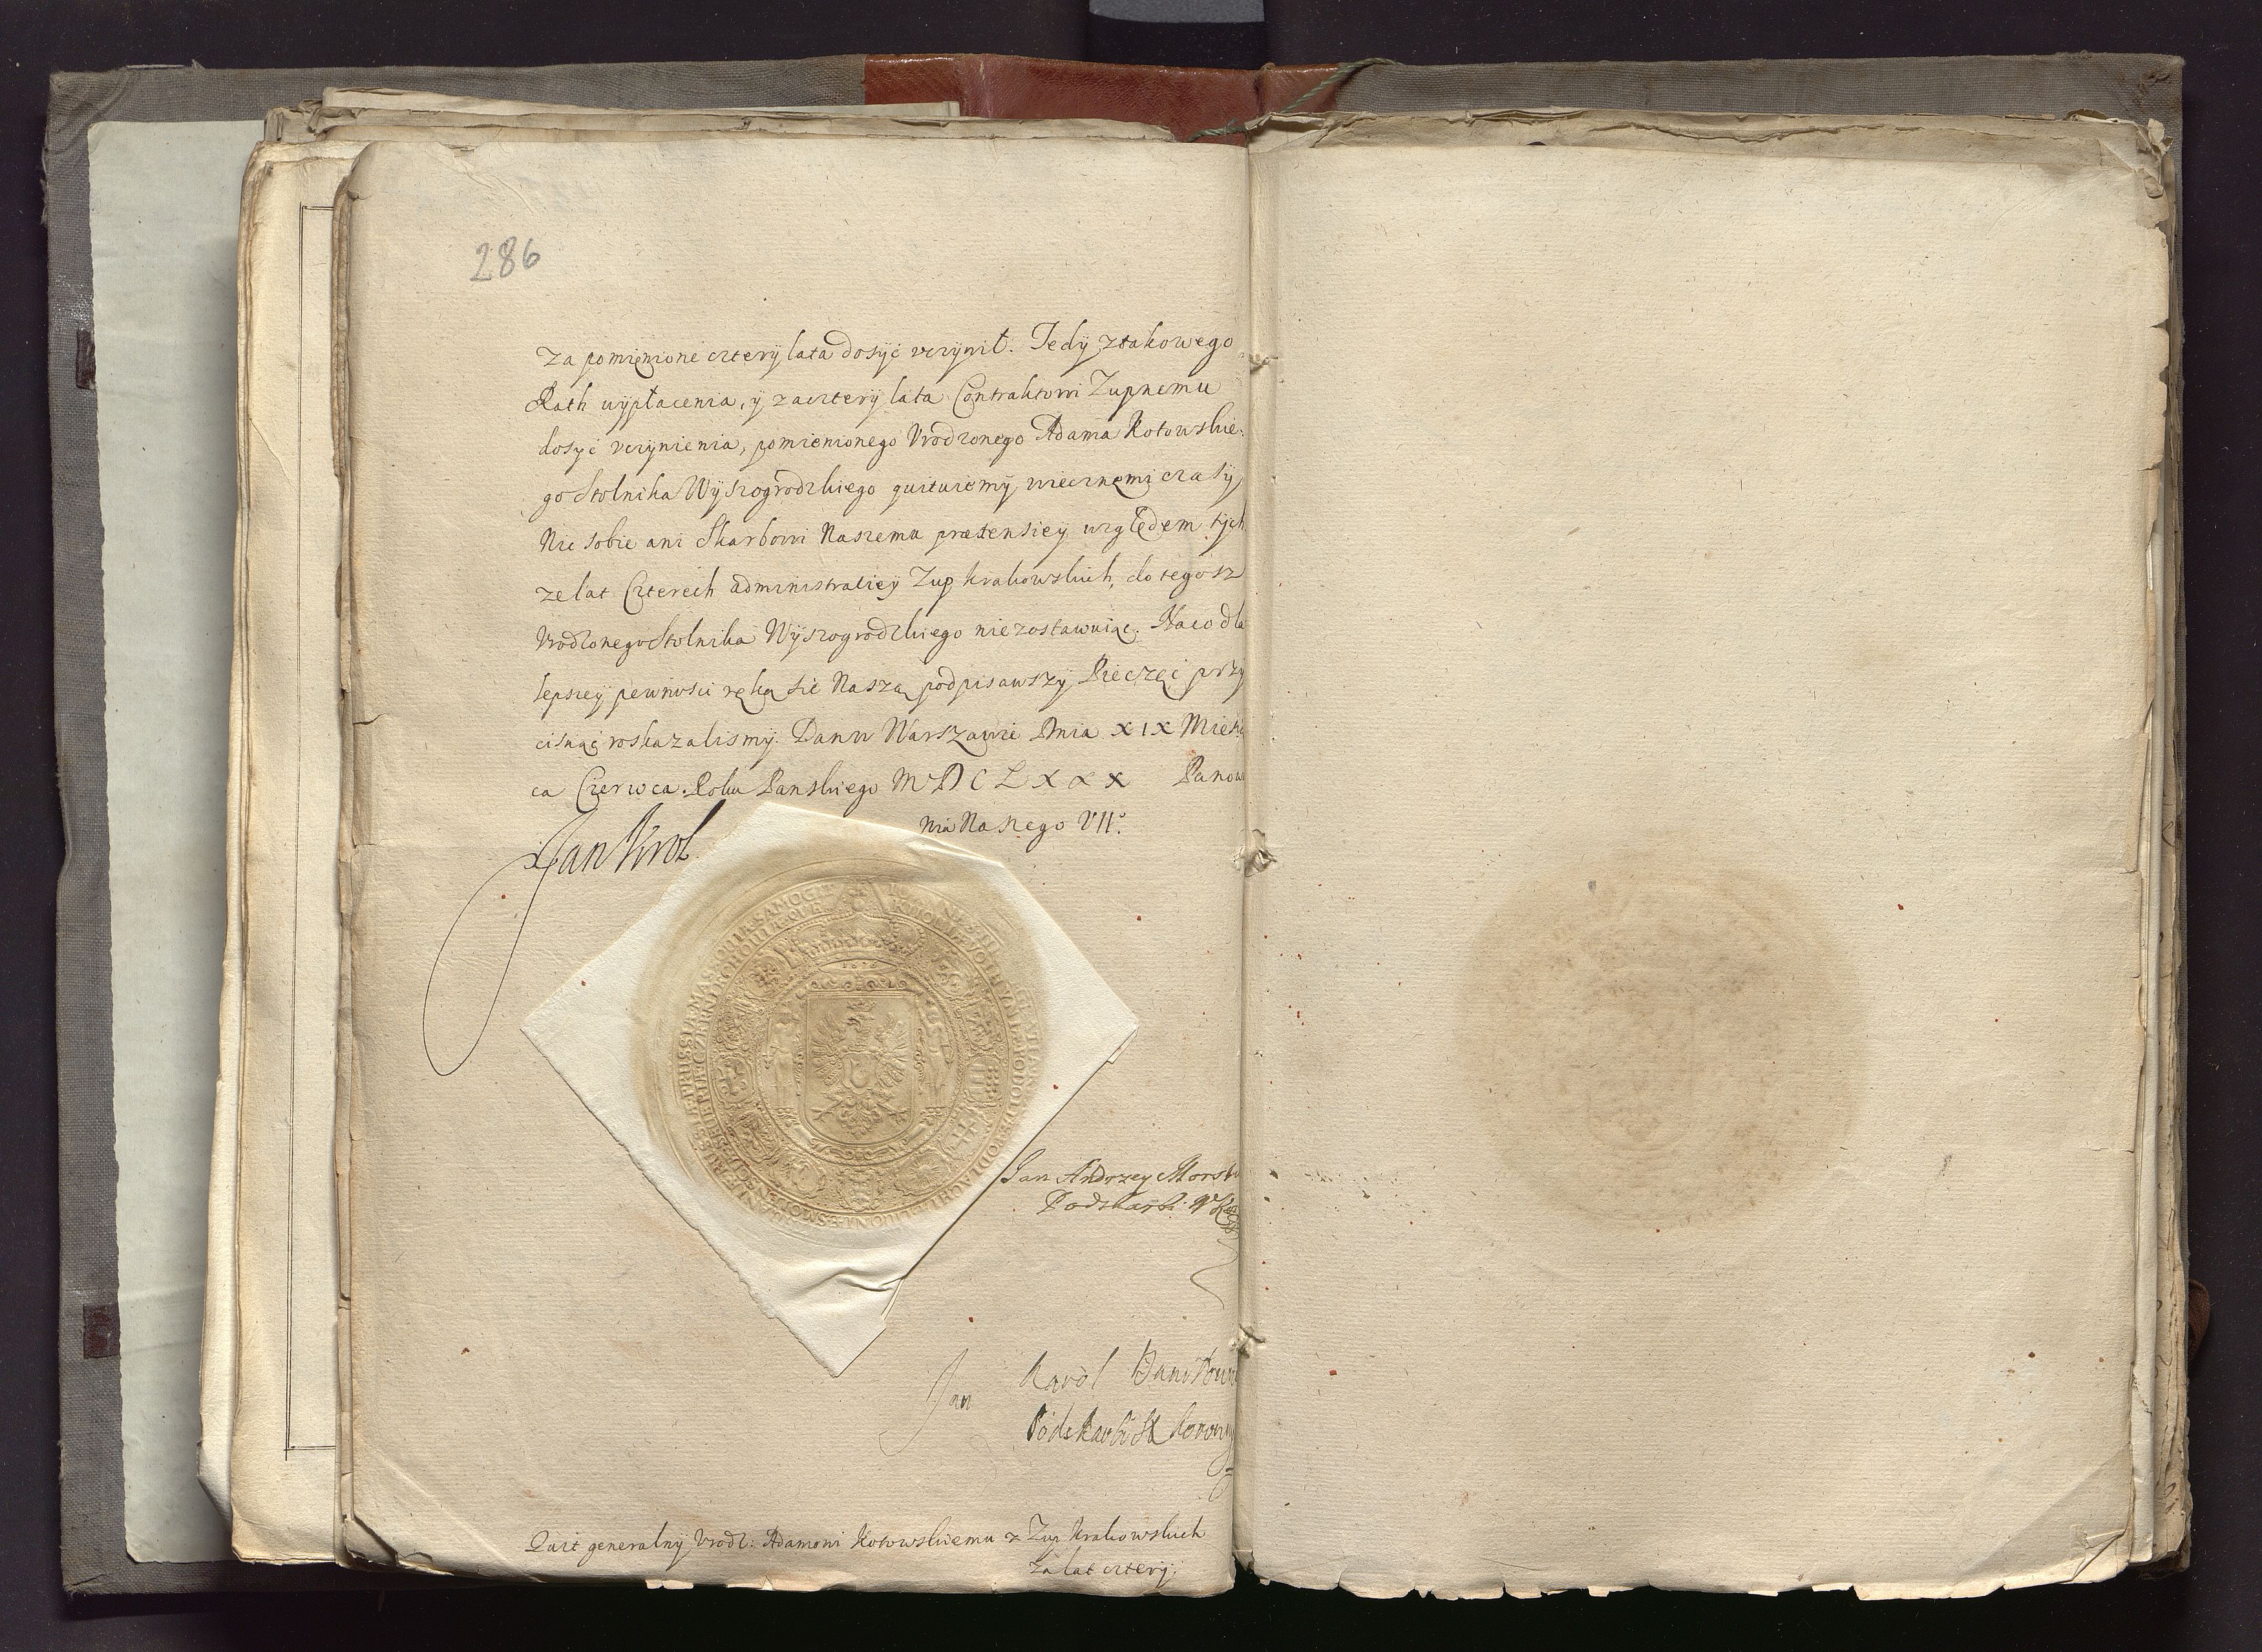 286
za pomienione cztery lata dosyć uczynił. Tedy z takowego
Rath wypłacenia, y za cztery lata Contraktowi Zupnemu
dosyć uczynienia, pomienionego Vrodzonego Adama Kotowskie:
go Stolnika Wyszogrodzkiego quituiemy wiecznemi czasy
Nic sobie ani Skarbowi Naszemu prætensiey względem tych
ze lat Czterech administratiey Zup Krakowskich, do tegosz
Vrodzonego Stolnika Wyszogrodzkiego nie zostawuiąc. Na co dla
lepszey pewnosci ręką się Naszą podpisawszy Pieczęć przy
cisnąć roskazalismy. Dan w Warszawie Dnia XIX Miesią
ca Czerwca. Roku Panskiego MDCLXXX Panowa
nia Naszego VII°.
Jan Krol
Jan Andrzey Morszt
Podskarbi W Kor
Jan Karol Danilow
Podskarbi N Koronny
Quit generalny Vrodz: Adamowi Kotowskiemu z Zup Krakowskich
za lat cztery.